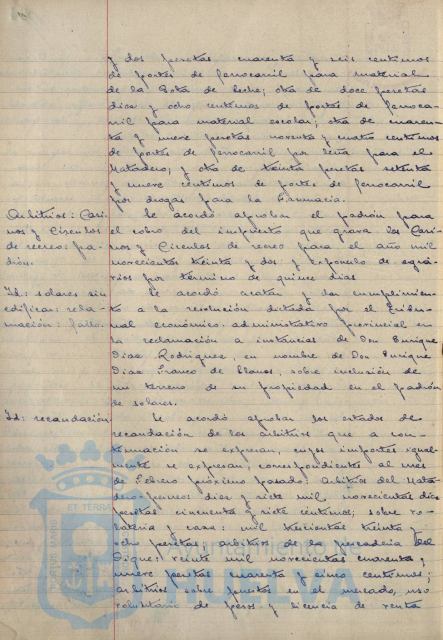 y dos pesetas cuarenta y seis centimos
de portes de ferrocarril para material
de la Gota de leche; otra de doce pesetas
diez y ocho centimos de portes de ferroca-
rril para material escolar; otra de cuaren-
ta y nueve pesetas noventa y cuatro centimos
de portes de ferrocarril por leña para el
Matadero; y otra de treinta pesetas setenta
y nueve centimos de portes de ferrocarril
por drogas para la Farmacia.
Arbitrios: Casi-
nos y Circulos
de recreo: pa-
drón.
Se acordó aprobar el padrón para
el cobro del impuesto que grava los Casi-
nos y Circulos de recreo para el año mil
novecientos treinta y dos y exponerlo de
por término de quince dias
Id: solares sin
edificar: recla-
mación: fallo.
Se acordó acatar y dar cumplimien-
to a la resolución dictada por el Tribu-
nal económico-administrativo provincial en
la reclamación a instancias de Don Enrique
Diaz Rodriguez, en nombre de Don Enrique
Diaz Franco de Llanos, sobre inclusión de
un terreno de su propiedad en el padrón
de solares.
Id: recaudación
Se acordó aprobar los estados de
recaudación de los arbitrios que a con-
tinuación se expresan, cuyos importes igual-
mente se expresan, correspondientes al mes
de Febrero próximo pasado: Arbitrios del Mata-
dero- diez y siete mil novecientas diez
pesetas cincuenta y siete centimos; sobre vo-
lateria y caza: mil trescientas treinta y
ocho pesetas arbitrios de la pescaderia del
Dique: veinte mil novecientas cuarenta y
nueve pesetas cuarenta y cinco centimos;
arbitrios sobre puestos en el mercado, uso
voluntario de pesos y licencia de venta
Ayuntamiento de
HUELVA